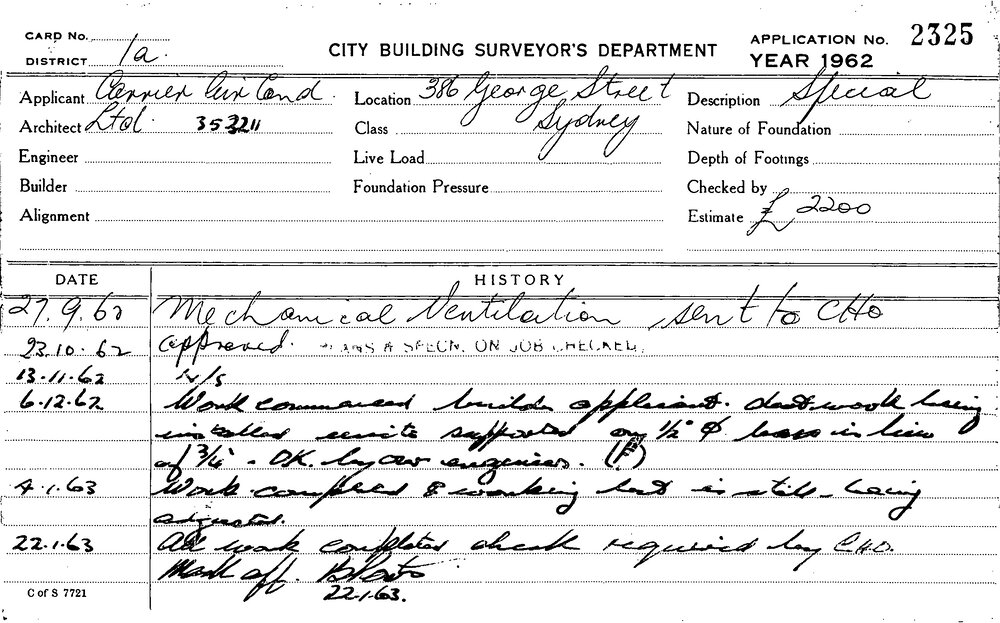 CARD No.
DISTRICT 1a
CITY BUILDING SURVEYOR'S DEPARTMENT
APPLICATION No. 2325
YEAR 1962
Applicant Carrier Air Cond
Location 386 George Street
Description Special
Architect Ltd. 353211
Class Sydney
Nature of Foundation
Engineer
Live Load
Depth of Footings
Builder
Foundation Pressure
Checked by
Alignment
Estimate £ 2200
DATE HISTORY
27.9.62 Mechanical Ventilation sent to CHO
23.10.62 approved. PLANS & SPECN. ON JOB CHECKED.
13.11.62 N/S
6.12.62 Work commenced builder applicant. ductwork being
installed units supported on 1/2" φ in lieu
of 3/4" - OK. by our engineer.
4.1.63 Work completed & working but is still being
adjusted.
22.1.63 All work completed check required by C.H.O.
Mark off.
22.1.63.
C of S 7721